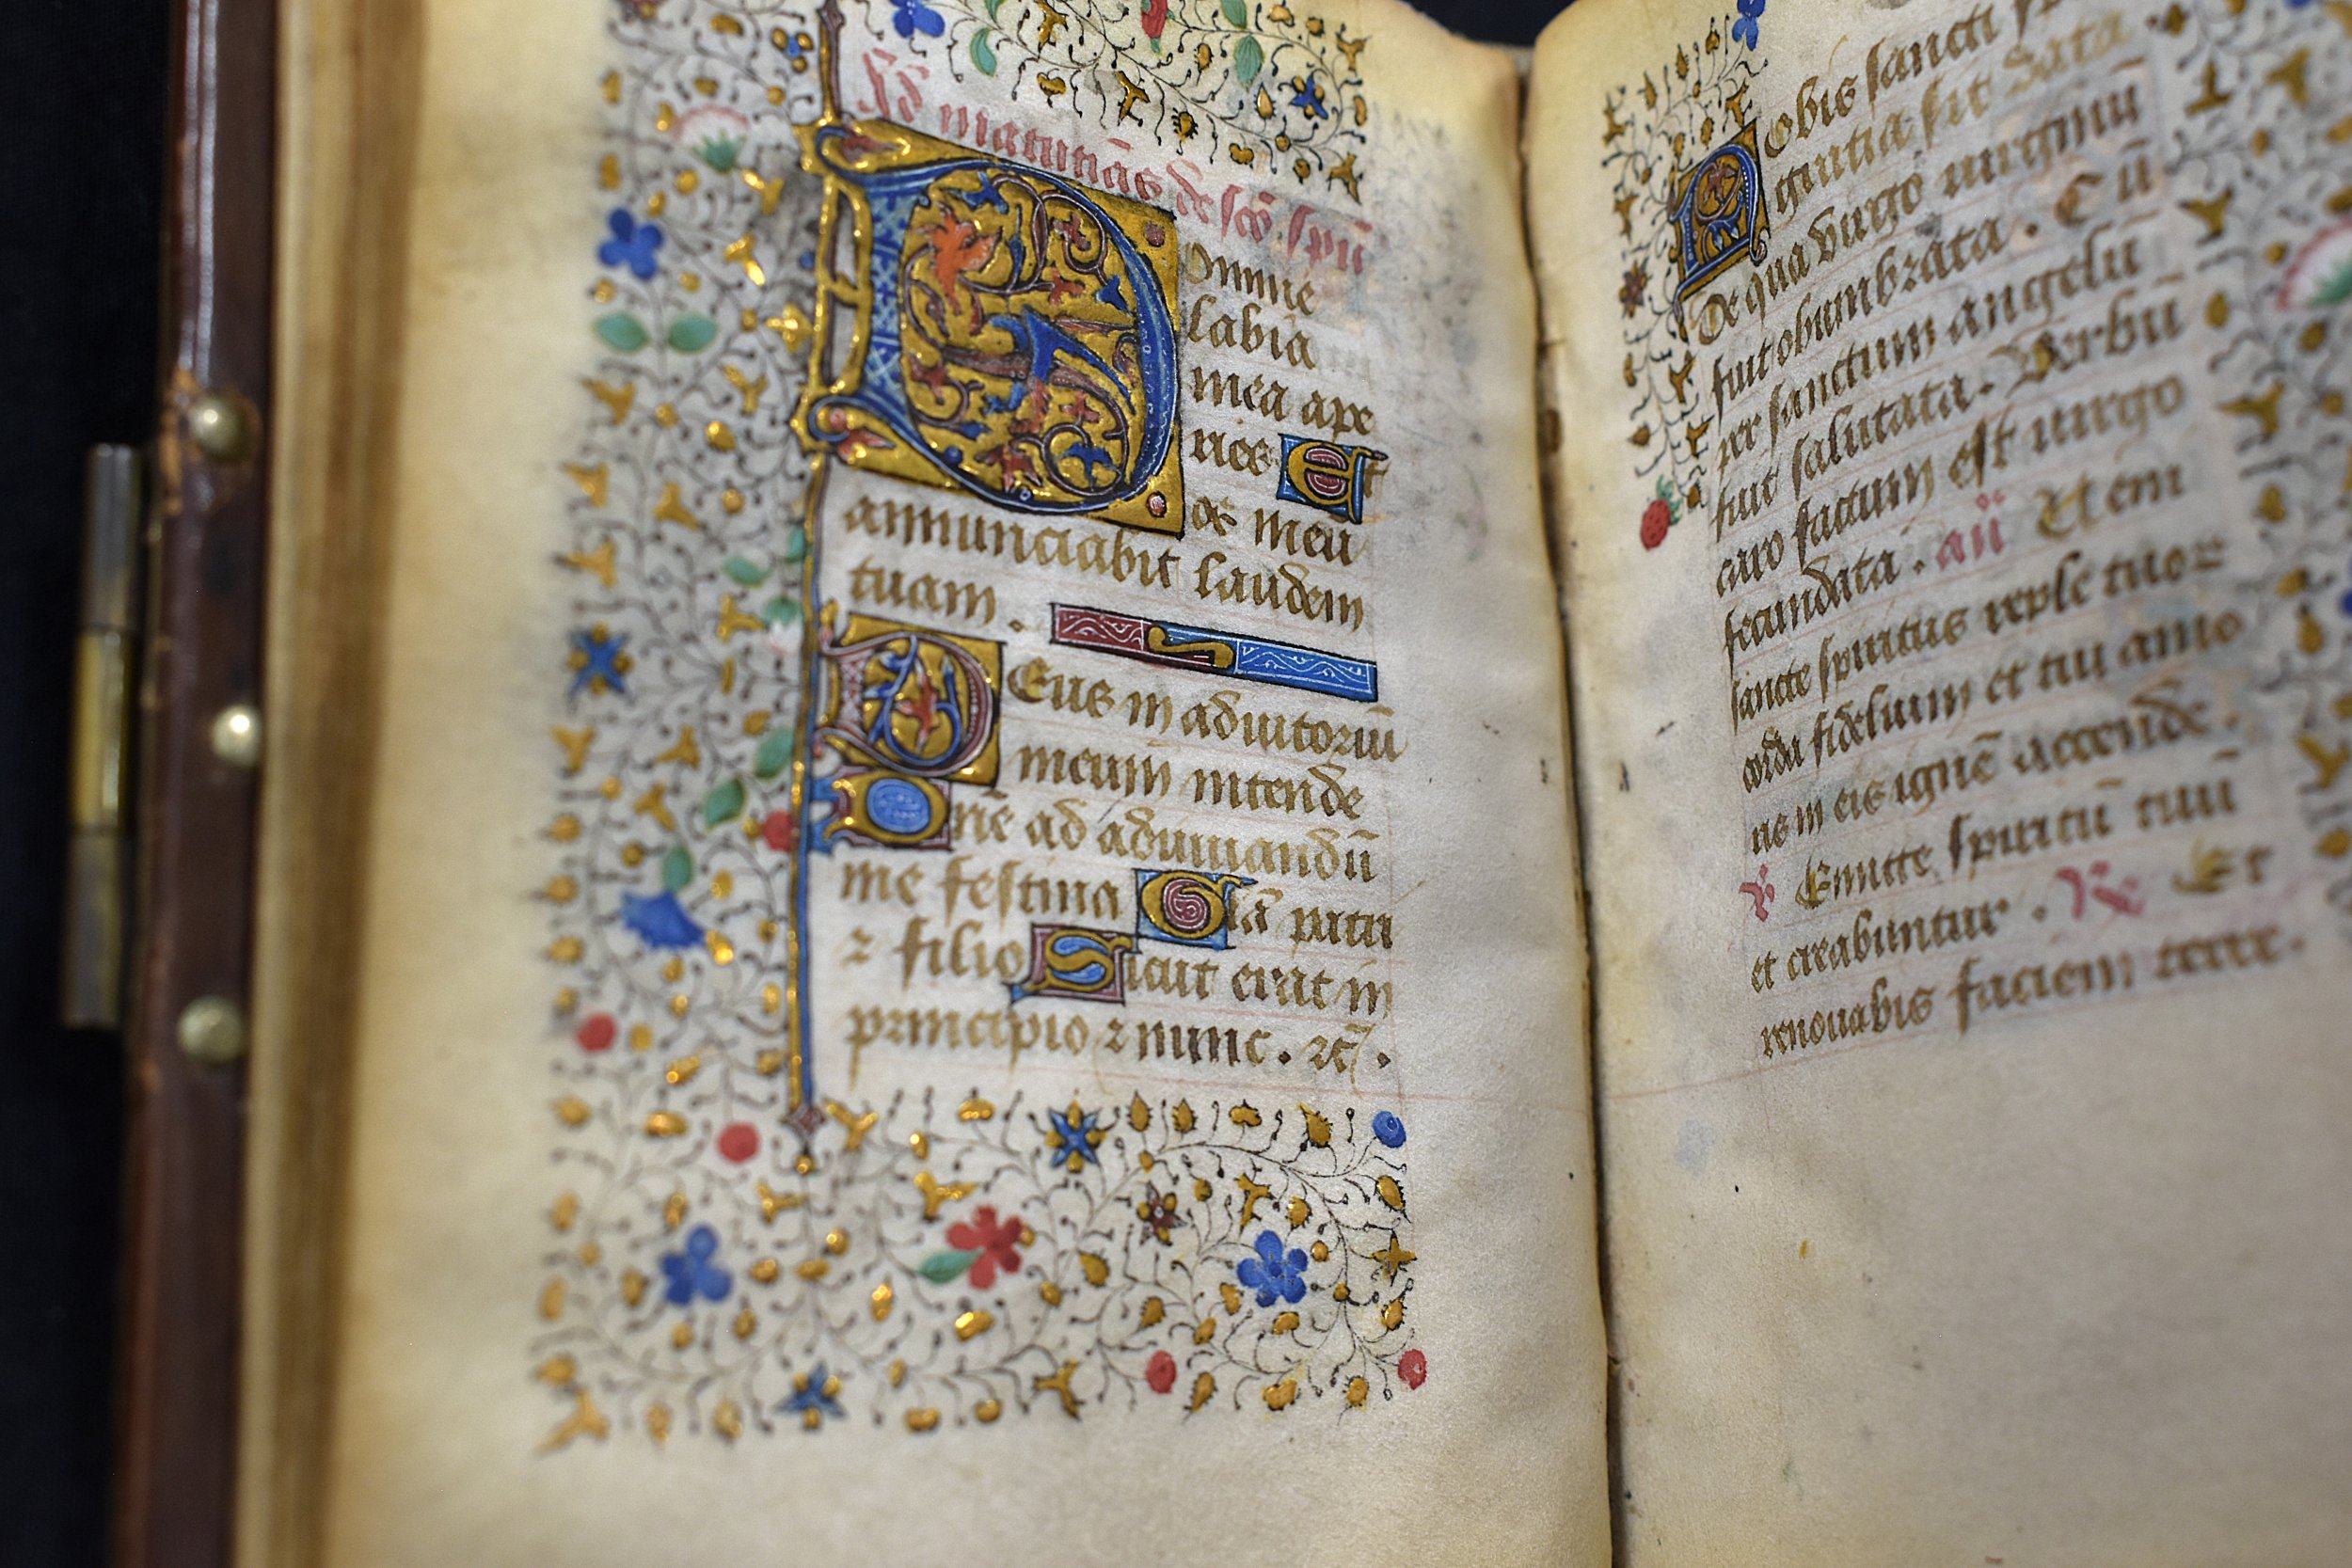 Ad matutinas de sco spu
Domine
labia
mea ape
ries Et
os meū
annunciabit laudem
tuam .
Deus in adiutoriū
meum intende
Dñe ad adiuuandū
me festina Glā patri
⁊ filio Sicut erat in
principio ⁊ nunc . ⁊c̄ .
Nobis sancti
gratia sit data .
De qua virgo virginū
fuit obumbrata . Cū
per sanctum angelū
fuit salutata . Verbū
caro factum est virgo
fecundata . an̄ Veni
sancte spiritus reple tuoꝝ
corda fidelium et tui amo
ris in eis ignē accende .
℣ Emitte spiritū tuū
et creabuntur . ℟ Et
renouabis faciem terre .